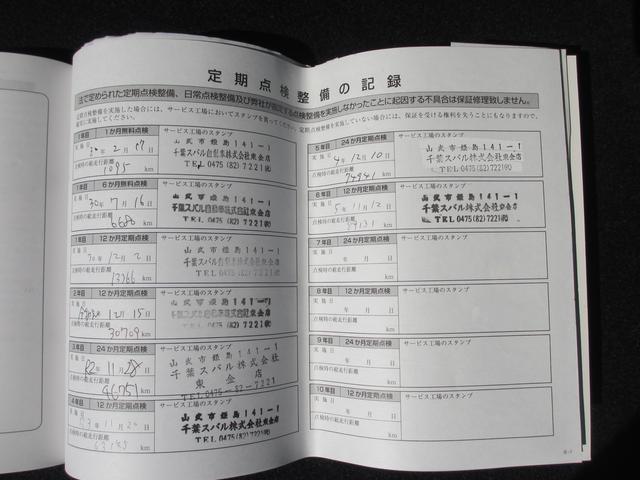 定期点検整備の記録
法で定められた定期点検整備、日常点検整備及び弊社が指定する点検整備を実施しなかったことに起因する不具合は保証修理致しません。
定期点検整備を実施した場合には、サービス工場においてスタンプを貰ってください。定期点検整備を実施していない場合には、保証を受ける権利を失うこともなりますので、
確実に実施してください。
1年目 1か月無料点検 サービス工場のスタンプ
実施日 30年 2月 日
山武市姫島141-1
千葉スバル自動車株式会社東金店
TEL 0475 (82) 7221㈹
点検時の総走行距離
1095 km
1年目 6か月無料点検 サービス工場のスタンプ
実施日 30年 7月 16日
山武市姫島141-1
千葉スバル自動車株式会社東金店
TEL 0475 (82) 7221㈹
点検時の総走行距離
6686 km
1年目 12か月定期点検 サービス工場のスタンプ
実施日 30年 12月 2日
山武市姫島141-1
TEL 0475 (82) 7221
点検時の総走行距離
13766 km
2年目 12か月定期点検 サービス工場のスタンプ
実施日 12月 15日
山武市姫島141-1
TEL 0475 (82) 7221
点検時の総走行距離
30709 km
3年目 24か月定期点検 サービス工場のスタンプ
実施日 R2年 11月 28日
山武市姫島141-1
千葉スバル株式会社
東金店
TEL 0475-82-7221
点検時の総走行距離
46751 km
4年目 12か月定期点検 サービス工場のスタンプ
実施日 年 11月 日
山武市姫島141-1
千葉スバル株式会社東金店
TEL 0475 (82) 7221㈹
点検時の総走行距離
km
5年目 24か月定期点検 サービス工場のスタンプ
実施日 4年 12月 10日
山武市姫島141-1
千葉スバル株式会社東金店
TEL 0475 (82) 7221㈹
点検時の総走行距離
74941 km
6年目 12か月定期点検 サービス工場のスタンプ
実施日 5年 11月 12日
山武市姫島141-1
千葉スバル株式会社東金店
TEL 0475 (82) 7221㈹
点検時の総走行距離
km
7年目 24か月定期点検 サービス工場のスタンプ
実施日 年 月 日
点検時の総走行距離
km
8年目 12か月定期点検 サービス工場のスタンプ
実施日 年 月 日
点検時の総走行距離
km
9年目 24か月定期点検 サービス工場のスタンプ
実施日 年 月 日
点検時の総走行距離
km
10年目 12か月定期点検 サービス工場のスタンプ
実施日 年 月 日
点検時の総走行距離
km